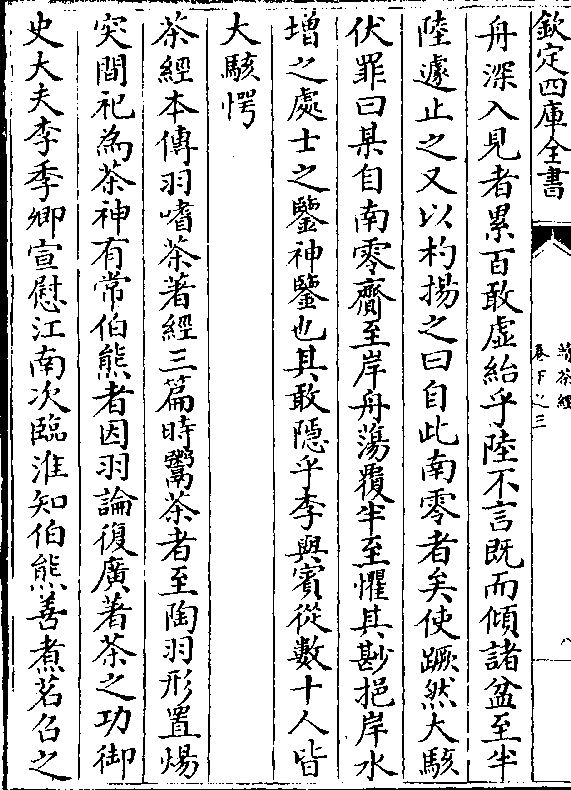 欽定四庫全書
續茶經
卷下之三
八
舟深入見者累百敢虛紿乎陸不言既而傾諸盆至半
陸遽止之又以杓揚之曰自此南零者矣使蹶然大駭
伏罪曰某自南零齎至岸舟蕩覆半至懼其尠挹岸水
增之處士之鑒神鑒也其敢隱乎李與賓從數十人皆
大駭愕
茶經本傳羽嗜茶著經三篇時鬻茶者至陶羽形置煬
突間祀為茶神有常伯熊者因羽論復廣著茶之功御
史大夫李季卿宣慰江南次臨淮知伯熊善煮茗召之